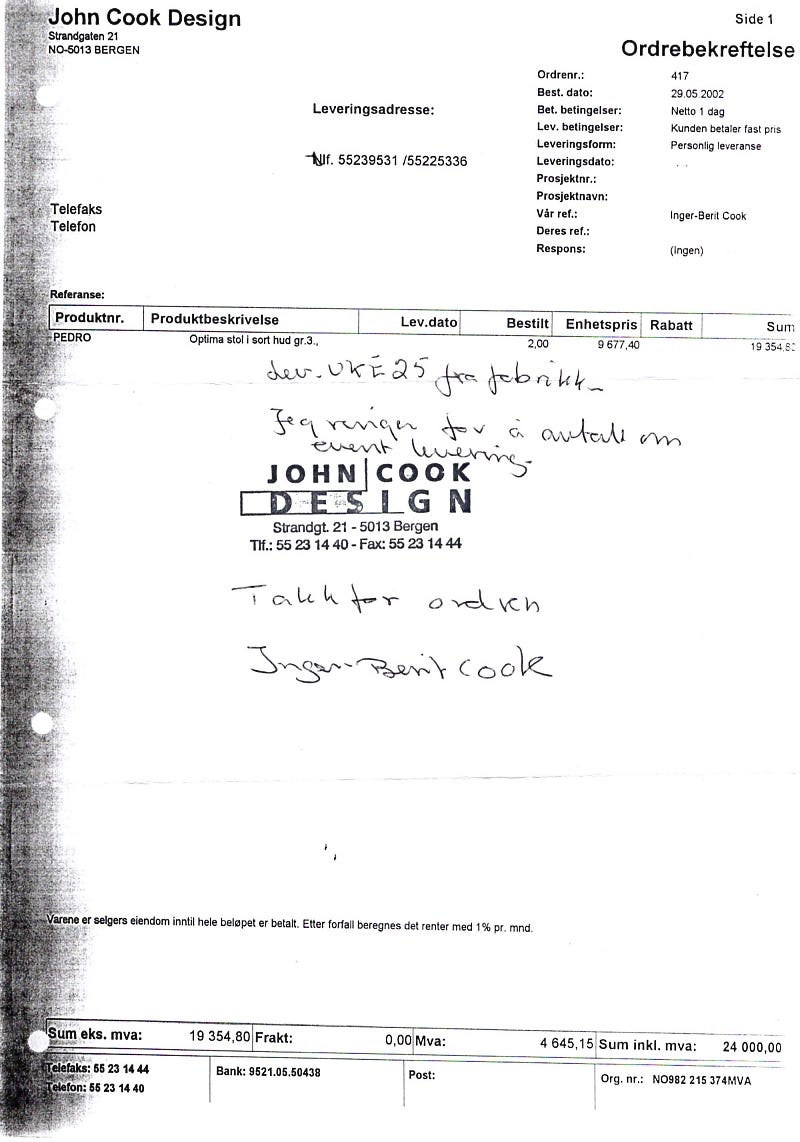 John Cook Design
Strandgaten 21
NO-5013 BERGEN
Side 1
Ordrebekreftelse
Ordrenr.: 417
Best. dato: 29.05.2002
Bet. betingelser: Netto 1 dag
Lev. betingelser: Kunden betaler fast pris
Leveringsform: Personlig leveranse
Leveringsdato: . .
Prosjektnr.:
Prosjektnavn:
Vår ref.: Inger-Berit Cook
Deres ref.:
Respons: (Ingen)
Leveringsadresse:
Tlf. 55239531 /55225336
Telefaks
Telefon
Referanse:
Produktnr. Produktbeskrivelse Lev.dato Bestilt Enhetspris Rabatt Sum
PEDRO Optima stol i sort hud gr.3., 2,00 9 677,40 19 354,8
Lev. UKE 25 fra fabrikk
Jeg ringer for å avtale om
event levering.
JOHN COOK
DESIGN
Strandgt. 21 - 5013 Bergen
Tlf.: 55 23 14 40 - Fax: 55 23 14 44
Takk for ordren
Inger-Berit Cook
Varene er selgers eiendom inntil hele beløpet er betalt. Etter forfall beregnes det renter med 1% pr. mnd.
Sum eks. mva: 19 354,80 Frakt: 0,00 Mva: 4 645,15 Sum inkl. mva: 24 000,00
Telefaks: 55 23 14 44
Telefon: 55 23 14 40
Bank: 9521.05.50438
Post:
Org. nr.: NO982 215 374MVA